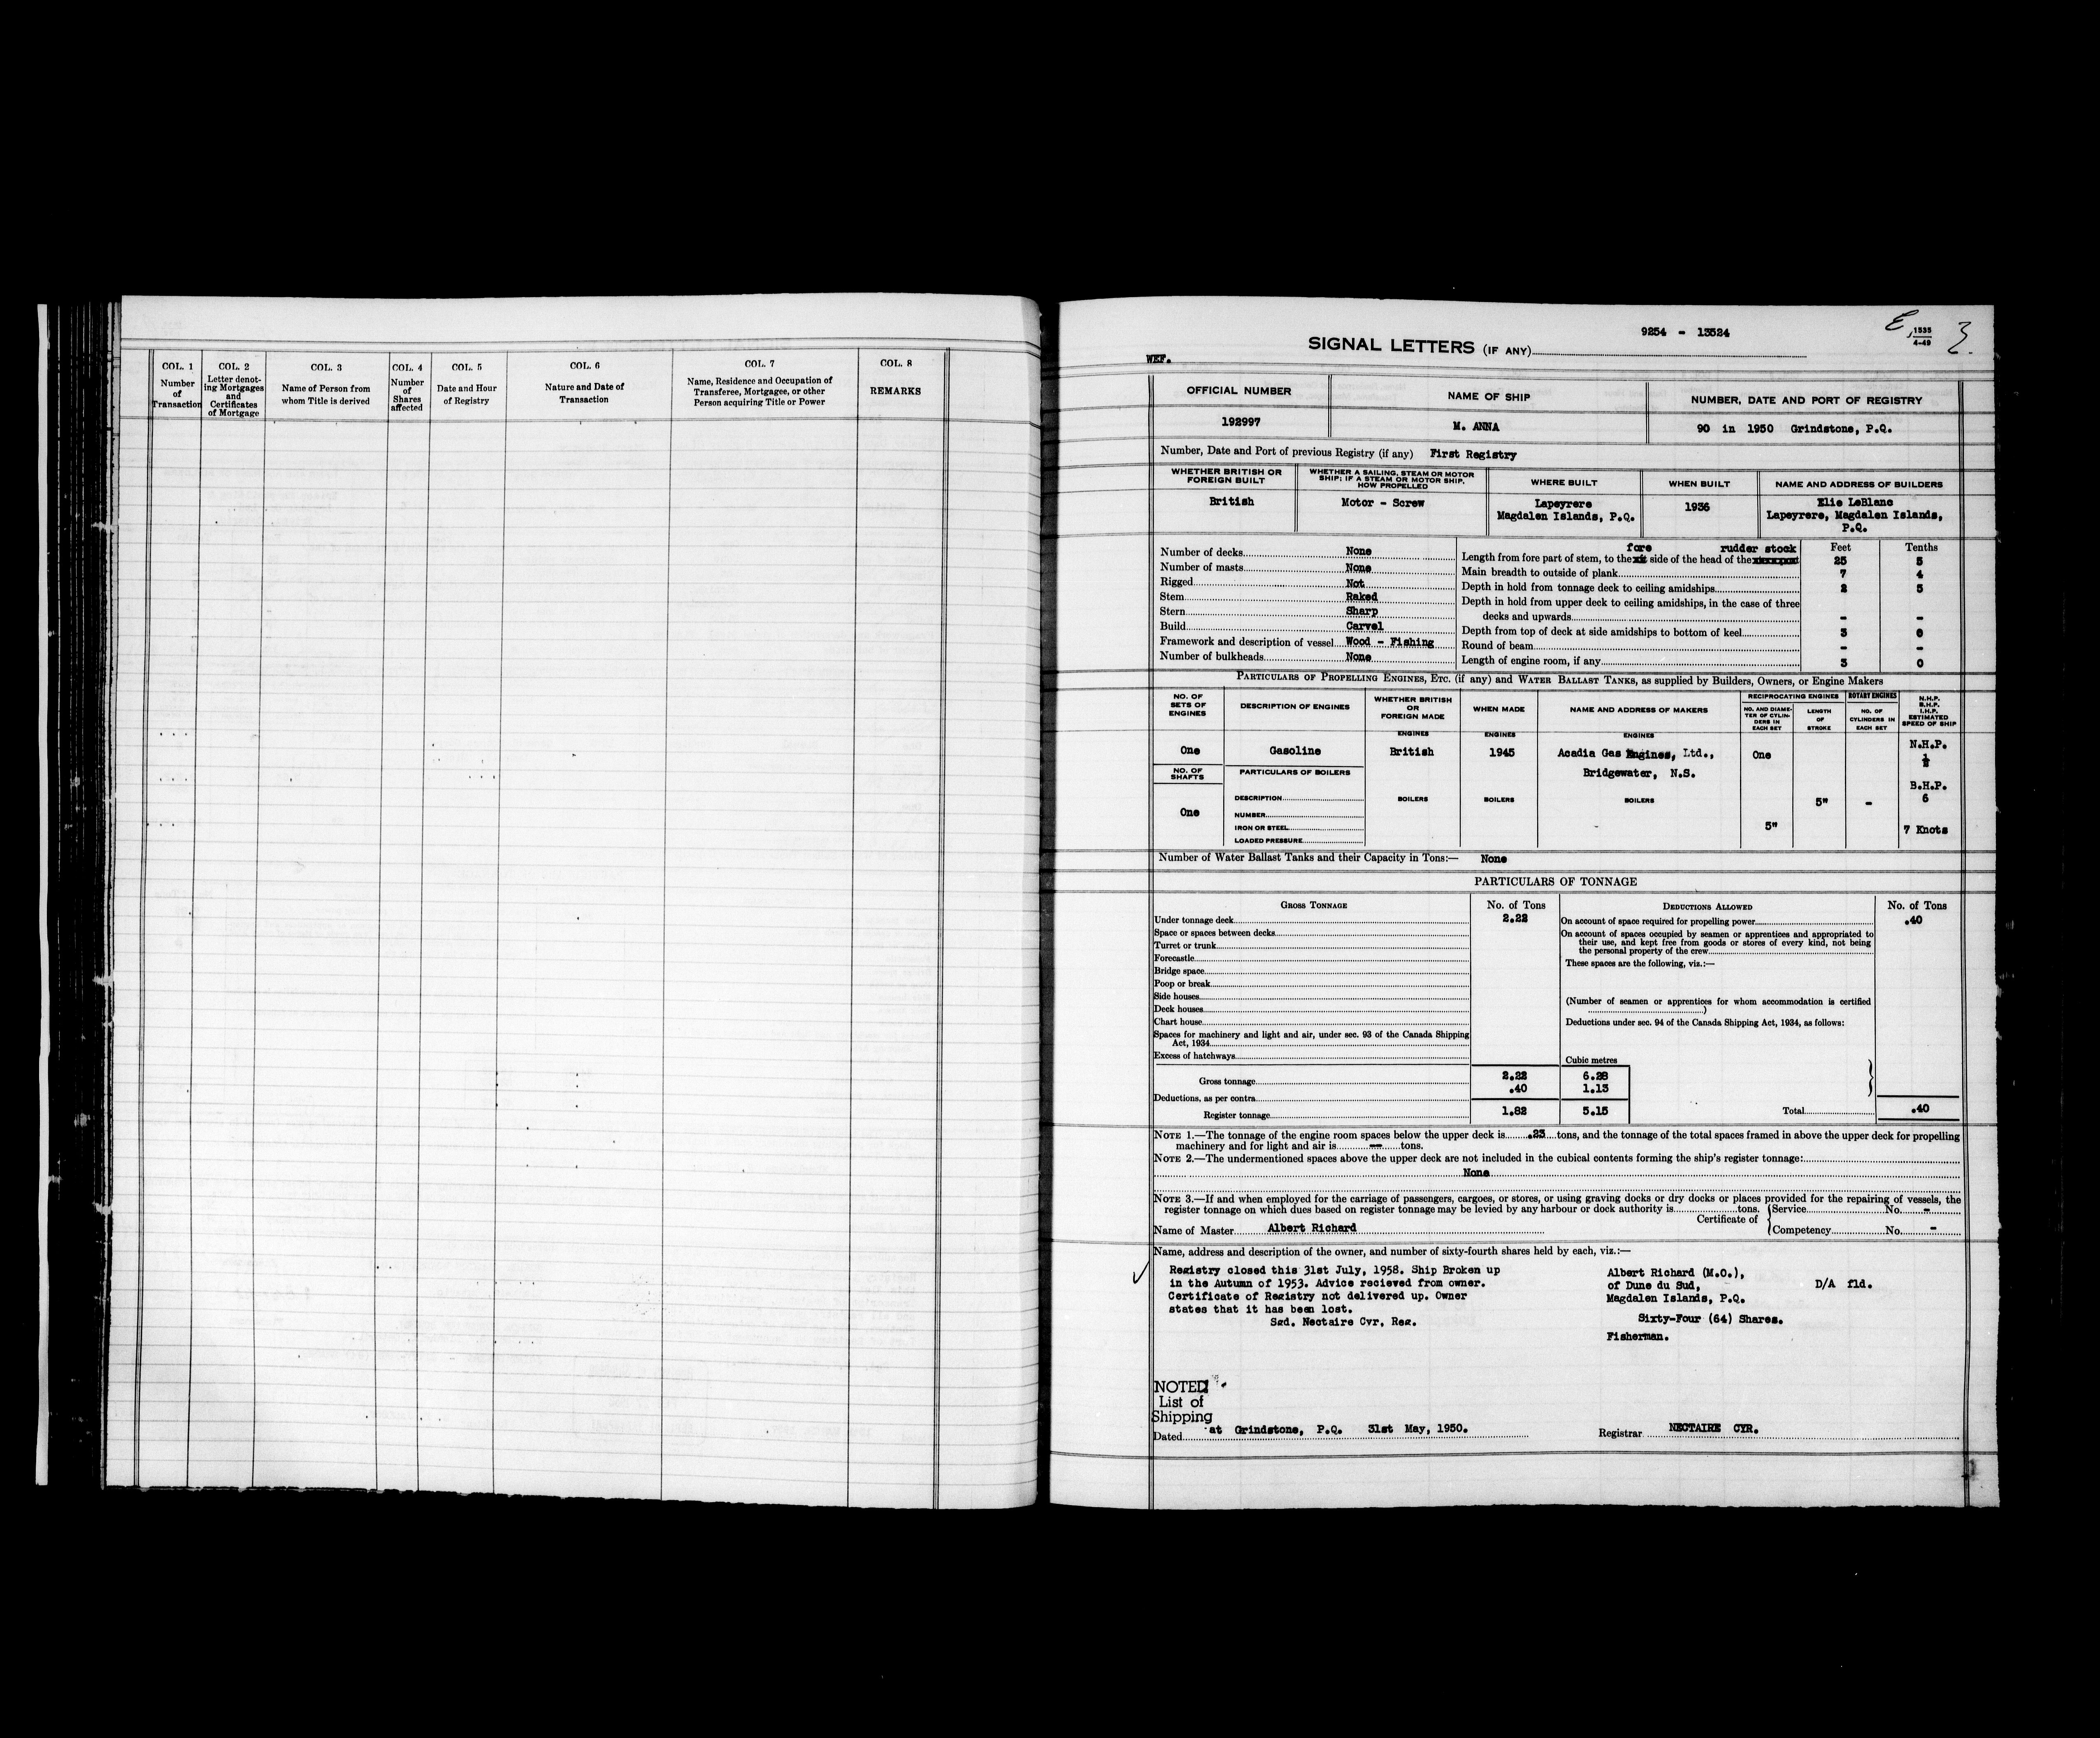 COL. 1
Number
of
Transaction
COL. 2
Letter denot-
ing Mortgages
and
Certificates
of Mortgage
COL. 3
Name of Person from
whom Title is derived
COL. 4
Number
of
Shares
affected
COL. 5
Date and Hour
of Registry
COL. 6
Nature and Date of
Transaction
COL. 7
Name, Residence and Occupation of
Transferee, Mortgagee, or other
Person acquiring Title or Power
COL. 8
REMARKS
9254 - 13524
E, 1535
4-49
3.
SIGNAL LETTERS (IF ANY)
WEF.
OFFICIAL NUMBER
NAME OF SHIP
NUMBER, DATE AND PORT OF REGISTRY
192997
M. ANNA
90 in 1950 Grindstone, P.Q.
Number, Date and Port of previous Registry (if any) First Registry
WHETHER BRITISH OR
FOREIGN BUILT
WHETHER A SAILING, STEAM OR MOTOR
SHIP; IF A STEAM OR MOTOR SHIP,
HOW PROPELLED
WHERE BUILT
WHEN BUILT
NAME AND ADDRESS OF BUILDERS
British
Motor - Screw
Lapeyrere
Magdalen Islands, P.Q.
1936
Elie LeBlanc
Lapeyrere, Magdalen Islands,
P.Q.
Number of decks None
Number of masts None
Rigged Not
Stem Raked
Stern Sharp
Build Carvel
Framework and description of vessel Wood - Fishing
Number of bulkheads None
Feet Tenths
fore rudder stock
Length from fore part of stem, to the side of the head of the 25 5
Main breadth to outside of plank 7 4
Depth in hold from tonnage deck to ceiling amidships 2 5
Depth in hold from upper deck to ceiling amidships, in the case of three
decks and upwards - -
Depth from top of deck at side amidships to bottom of keel 3 0
Round of beam - -
Length of engine room, if any 3 0
PARTICULARS OF PROPELLING ENGINES, ETC. (if any) and WATER BALLAST TANKS, as supplied by Builders, Owners, or Engine Makers
NO. OF
SETS OF
ENGINES
DESCRIPTION OF ENGINES
WHETHER BRITISH
OR
FOREIGN MADE
WHEN MADE
NAME AND ADDRESS OF MAKERS
RECIPROCATING ENGINES
NO. AND DIAME-
TER OF CYLIN-
DERS IN
EACH SET
LENGTH
OF
STROKE
ROTARY ENGINES
NO. OF
CYLINDERS IN
EACH SET
N.H.P.
B.H.P.
I.H.P.
ESTIMATED
SPEED OF SHIP
ENGINES
ENGINES
ENGINES
One
Gasoline
British
1945
Acadia Gas Engines, Ltd.,
Bridgewater, N.S.
One
N.H.P.
½
NO. OF
SHAFTS
PARTICULARS OF BOILERS
B.H.P.
6
One
DESCRIPTION
BOILERS
BOILERS
BOILERS
5"
-
NUMBER
IRON OR STEEL
5"
7 Knots
LOADED PRESSURE
Number of Water Ballast Tanks and their Capacity in Tons:— None
PARTICULARS OF TONNAGE
GROSS TONNAGE
No. of Tons
Under tonnage deck 2.22
Space or spaces between decks
Turret or trunk
Forecastle
Bridge space
Poop or break
Side houses
Deck houses
Chart house
Spaces for machinery and light and air, under sec. 93 of the Canada Shipping
Act, 1934
Excess of hatchways
Cubic metres
Gross tonnage 2.22 6.28
Deductions, as per contra .40 1.13
Register tonnage 1.82 5.15
DEDUCTIONS ALLOWED
No. of Tons
On account of space required for propelling power .40
On account of spaces occupied by seamen or apprentices and appropriated to
their use, and kept free from goods or stores of every kind, not being
the personal property of the crew
These spaces are the following, viz.:—
(Number of seamen or apprentices for whom accommodation is certified
)
Deductions under sec. 94 of the Canada Shipping Act, 1934, as follows:
Total .40
NOTE 1.—The tonnage of the engine room spaces below the upper deck is .23 tons, and the tonnage of the total spaces framed in above the upper deck for propelling
machinery and for light and air is — tons.
NOTE 2.—The undermentioned spaces above the upper deck are not included in the cubical contents forming the ship's register tonnage:
None
NOTE 3.—If and when employed for the carriage of passengers, cargoes, or stores, or using graving docks or dry docks or places provided for the repairing of vessels, the
register tonnage on which dues based on register tonnage may be levied by any harbour or dock authority is tons.
Certificate of
Service No. -
Competency No. -
Name of Master Albert Richard
Name, address and description of the owner, and number of sixty-fourth shares held by each, viz.:—
Registry closed this 31st July, 1958. Ship Broken up
in the Autumn of 1953. Advice recieved from owner.
Certificate of Registry not delivered up. Owner
states that it has been lost.
Sgd. Nectaire Cyr, Reg.
Albert Richard (M.O.),
of Dune du Sud, D/A fld.
Magdalen Islands, P.Q.
Sixty-Four (64) Shares.
Fisherman.
NOTED
List of
Shipping
Dated at Grindstone, P.Q. 31st May, 1950.
Registrar NECTAIRE CYR.